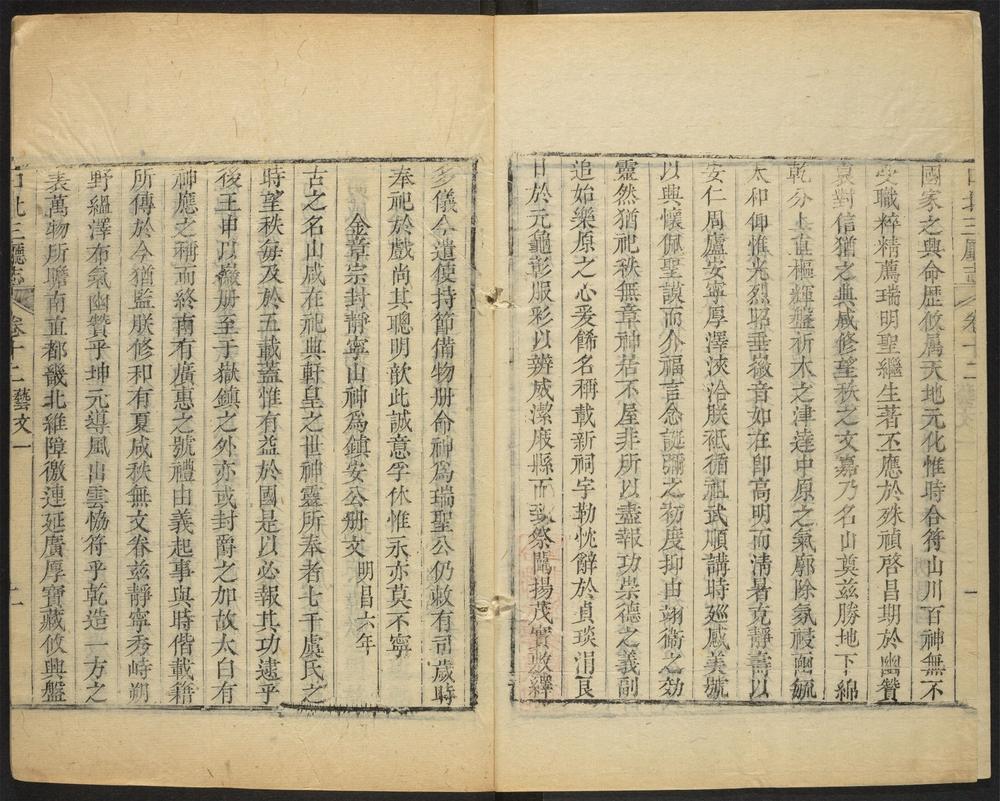 口北三廳志 卷十二 一
國家之興命歷攸屬天地元化惟時合符山川百神無不
受職粹精薦瑞明聖繼生著丕應於殊禎啓昌期於幽贊
裒對信猶之典咸修望秩之文嘉乃名山奠茲勝地下綿
乾分上直樞輝盤析木之津達中原之氣廓除氛祲函毓
太和仰惟光烈昭垂徽音如在卽高明而淸暑克靜壽以
安仁周廬安寧厚澤浹洽朕祗循祖武順講時廵感美號
以興懷佩聖謨而介福言念誕彌之初度抑由翊衞之効
靈然猶祀秩無章神居不屋非所以盡報功崇德之義副
追始樂原之心爰餙名稱載新祠宇勒忱辭於貞琰涓良
日於元龜彰服彩以辨威潔庪縣而致祭闡揚茂實敷繹
多儀今遣使持節備物册命神爲瑞聖公仍敕有司歲時
奉祀於戲尚其聰明歆此誠意孚休惟永亦莫不寧
金章宗封靜寧山神爲鎮安公册文 明昌六年
古之名山咸在祀典軒皇之世神靈所奉者七千虞氏之
時望秩每及於五載蓋惟有益於國是以必報其功逮乎
後王申以徽册至于嶽鎮之外亦或封爵之加故太白有
神應之稱而終南有廣惠之號禮由義起事與時偕載籍
所傳於今猶監朕修和有夏咸秩無文眷茲靜寧秀峙朔
野縕澤布氣幽贊乎坤元導風出雲恊符乎乾造一方之
表萬物所瞻南直都畿北維障徼連延廣厚寶藏攸興盤
口北三廳志 卷十二 藝文一 二